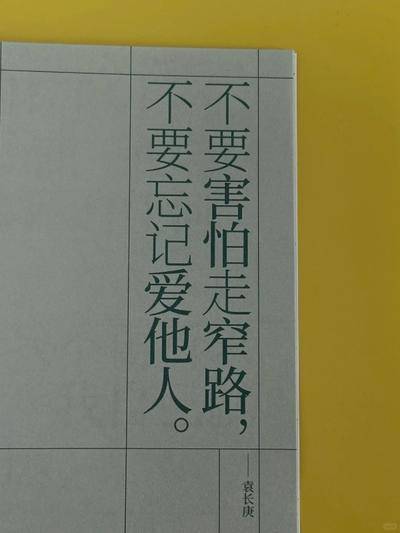 不要害怕走窄路，
不要忘记爱他人。
——袁长庚